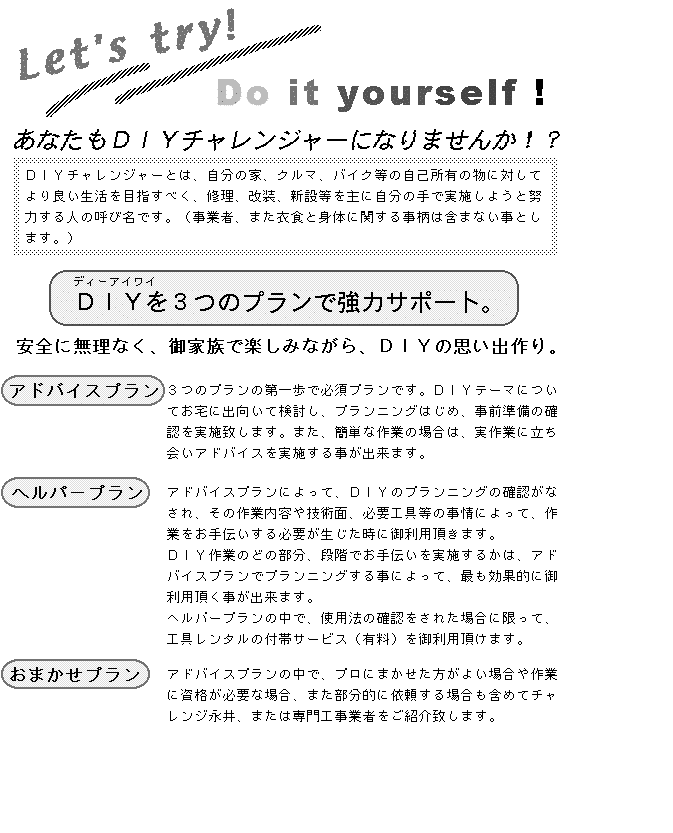 Let's try!
Do it yourself !
あなたもＤＩＹチャレンジャーになりませんか！？
ＤＩＹチャレンジャーとは、自分の家、クルマ、バイク等の自己所有の物に対して
より良い生活を目指すべく、修理、改装、新設等を主に自分の手で実施しようと努
力する人の呼び名です。（事業者、また衣食と身体に関する事柄は含まない事とし
ます。）
ディーアイワイ
ＤＩＹを３つのプランで強力サポート。
安全に無理なく、御家族で楽しみながら、ＤＩＹの思い出作り。
アドバイスプラン
３つのプランの第一歩で必須プランです。ＤＩＹテーマについ
てお宅に出向いて検討し、プランニングはじめ、事前準備の確
認を実施致します。また、簡単な作業の場合は、実作業に立ち
会いアドバイスを実施する事が出来ます。
ヘルパープラン
アドバイスプランによって、ＤＩＹのプランニングの確認がな
され、その作業内容や技術面、必要工具等の事情によって、作
業をお手伝いする必要が生じた時に御利用頂きます。
ＤＩＹ作業のどの部分、段階でお手伝いを実施するかは、アド
バイスプランでプランニングする事によって、最も効果的に御
利用頂く事が出来ます。
ヘルパープランの中で、使用法の確認をされた場合に限って、
工具レンタルの付帯サービス（有料）を御利用頂けます。
おまかせプラン
アドバイスプランの中で、プロにまかせた方がよい場合や作業
に資格が必要な場合、また部分的に依頼する場合も含めてチャ
レンジ永井、または専門工事業者をご紹介致します。